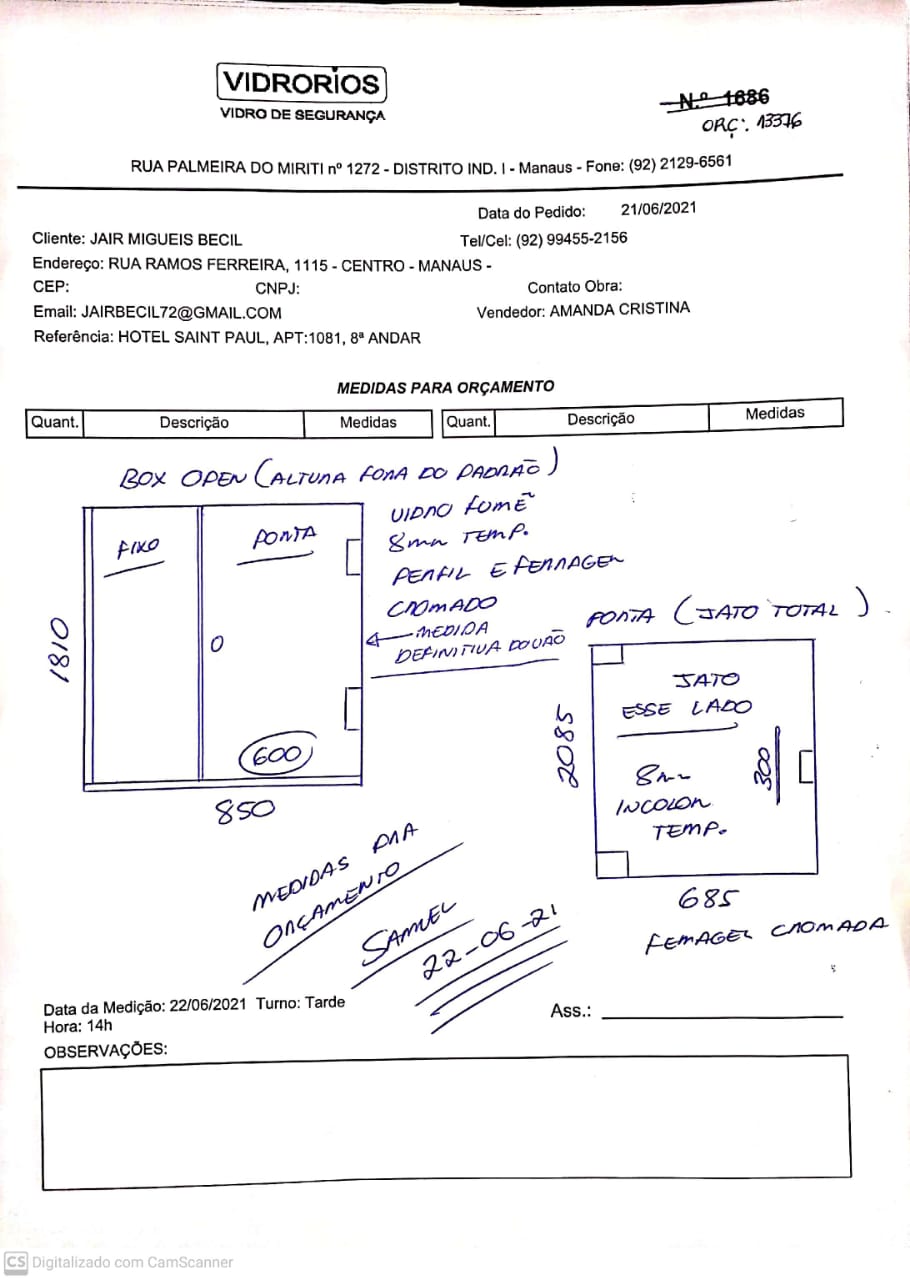 VIDRORIOS
VIDRO DE SEGURANÇA
N.º 1686
ORÇ: 13376
RUA PALMEIRA DO MIRITI nº 1272 - DISTRITO IND. I - Manaus - Fone: (92) 2129-6561
Data do Pedido: 21/06/2021
Cliente: JAIR MIGUEIS BECIL Tel/Cel: (92) 99455-2156
Endereço: RUA RAMOS FERREIRA, 1115 - CENTRO - MANAUS -
CEP: CNPJ: Contato Obra:
Email: JAIRBECIL72@GMAIL.COM Vendedor: AMANDA CRISTINA
Referência: HOTEL SAINT PAUL, APT:1081, 8ª ANDAR
MEDIDAS PARA ORÇAMENTO
Quant. Descrição Medidas Quant. Descrição Medidas
BOX OPEN (ALTURA FORA DO PADRÃO)
VIDRO FUMÊ
8mm TEMP.
PERFIL E FERRAGEM
CROMADO
MEDIDA
DEFINITIVA DO VÃO
FIXO
PORTA
1810
600
850
PORTA (JATO TOTAL)
JATO
ESSE LADO
2085
300
8mm
INCOLOR
TEMP.
685
FERRAGEM CROMADA
MEDIDAS PRA
ORÇAMENTO
SAMUEL
22-06-21
Data da Medição: 22/06/2021 Turno: Tarde
Hora: 14h
Ass.:
OBSERVAÇÕES:
CS Digitalizado com CamScanner